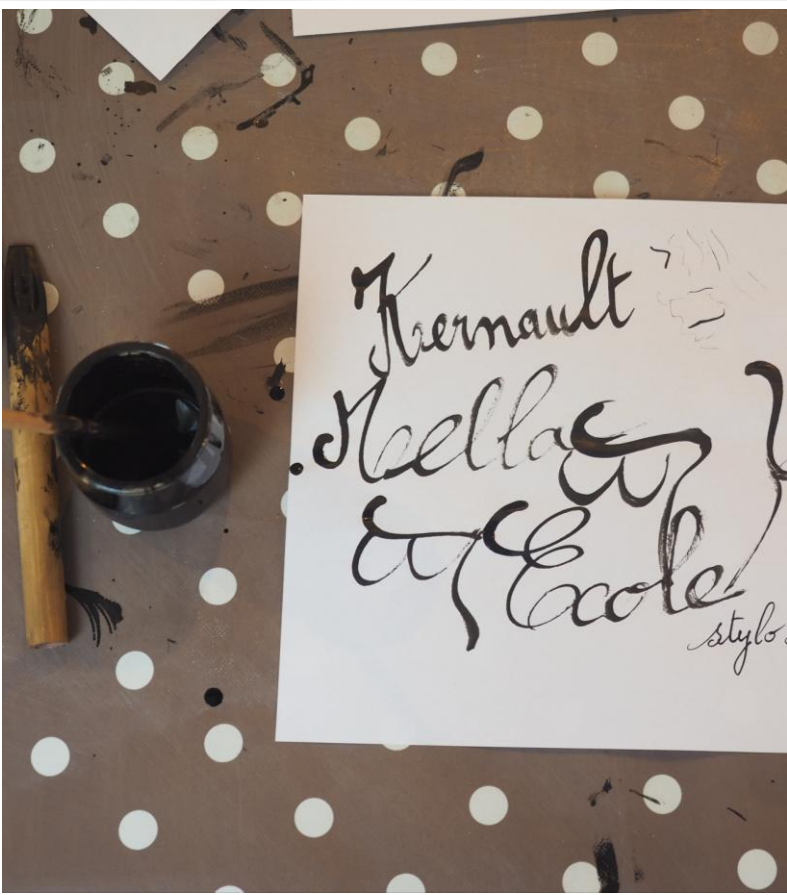 Kernault
Mella
Ecole
stylo